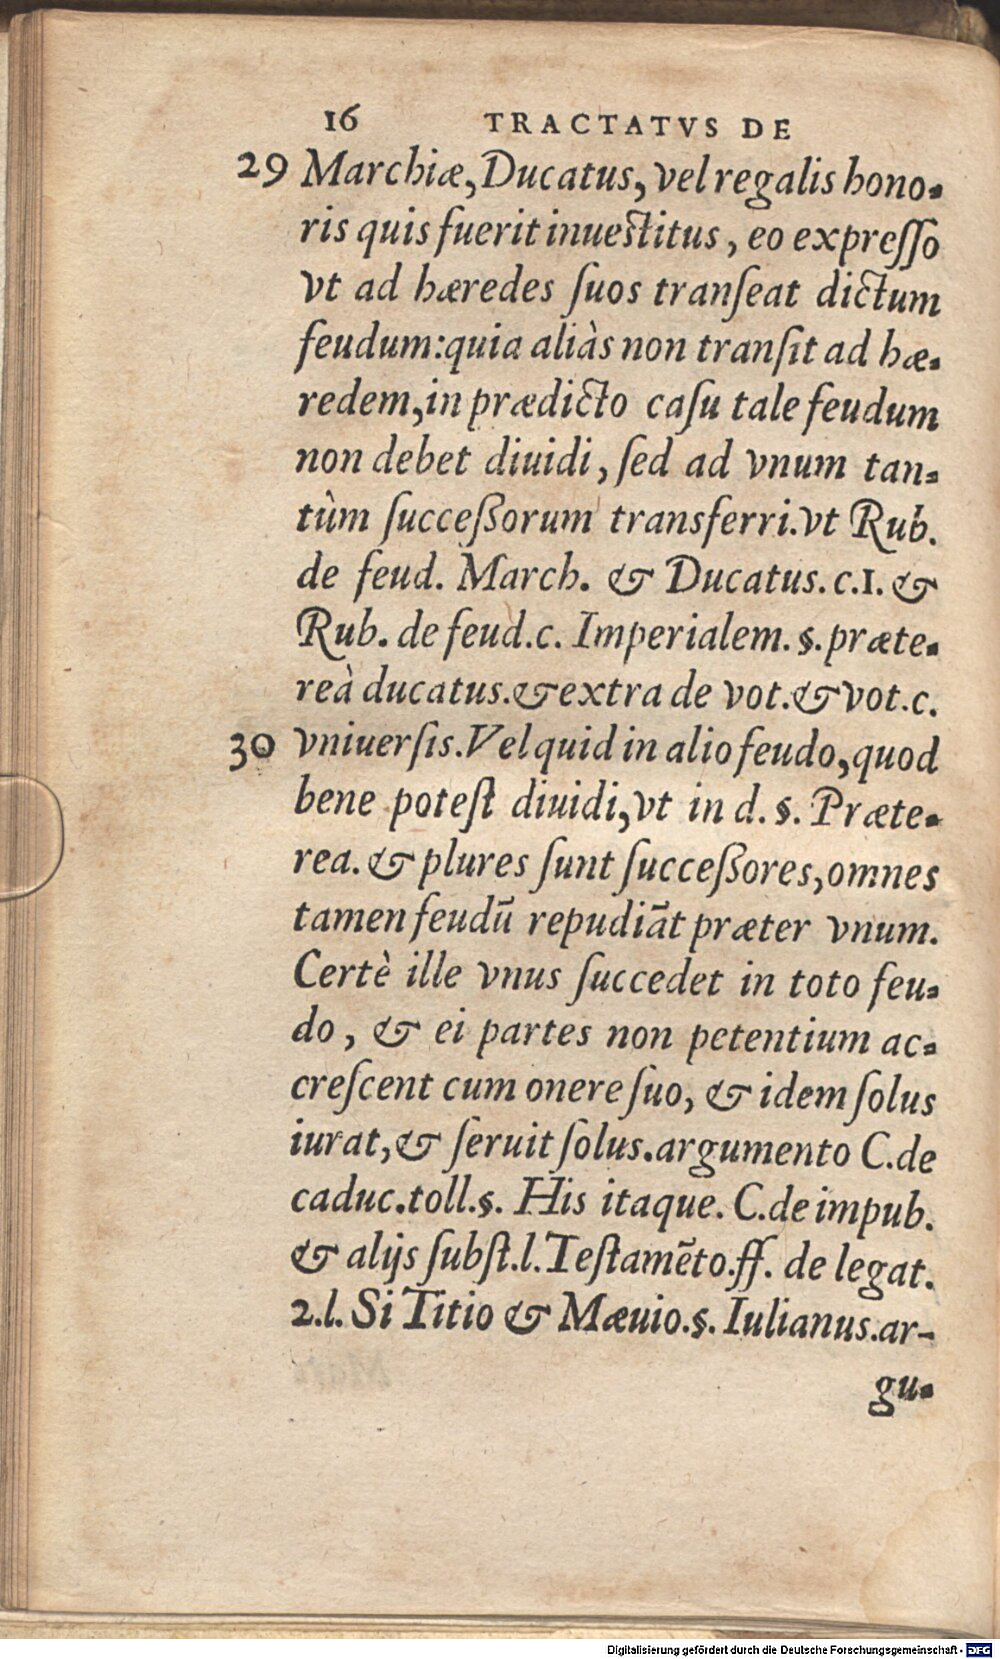 16 TRACTATVS DE
29 Marchiæ, Ducatus, vel regalis hono-
ris quis fuerit inuestitus, eo expreſſo
vt ad hæredes ſuos tranſeat dictum
feudum: quia aliàs non tranſit ad hæ-
redem, in prædicto caſu tale feudum
non debet diuidi, ſed ad vnum tan-
tùm ſucceßorum transferri. vt Rub.
de feud. March. & Ducatus. c.1. &
Rub. de feud. c. Imperialem. §. præte-
reà ducatus. & extra de vot. & vot. c.
30 vniuerſis. Vel quid in alio feudo, quod
bene poteſt diuidi, vt in d. §. Præte-
rea. & plures ſunt ſucceßores, omnes
tamen feudū repudiāt præter vnum.
Certè ille vnus ſuccedet in toto feu-
do, & ei partes non petentium ac-
creſcent cum onere ſuo, & idem ſolus
iurat, & ſeruit ſolus. argumento C. de
caduc. toll. §. His itaque. C. de impub.
& alijs ſubſt. l. Teſtamēto. ff. de legat.
2. l. Si Titio & Mæuio. §. Iulianus. ar-
gu-
Digitalisierung gefördert durch die Deutsche Forschungsgemeinschaft - DFG